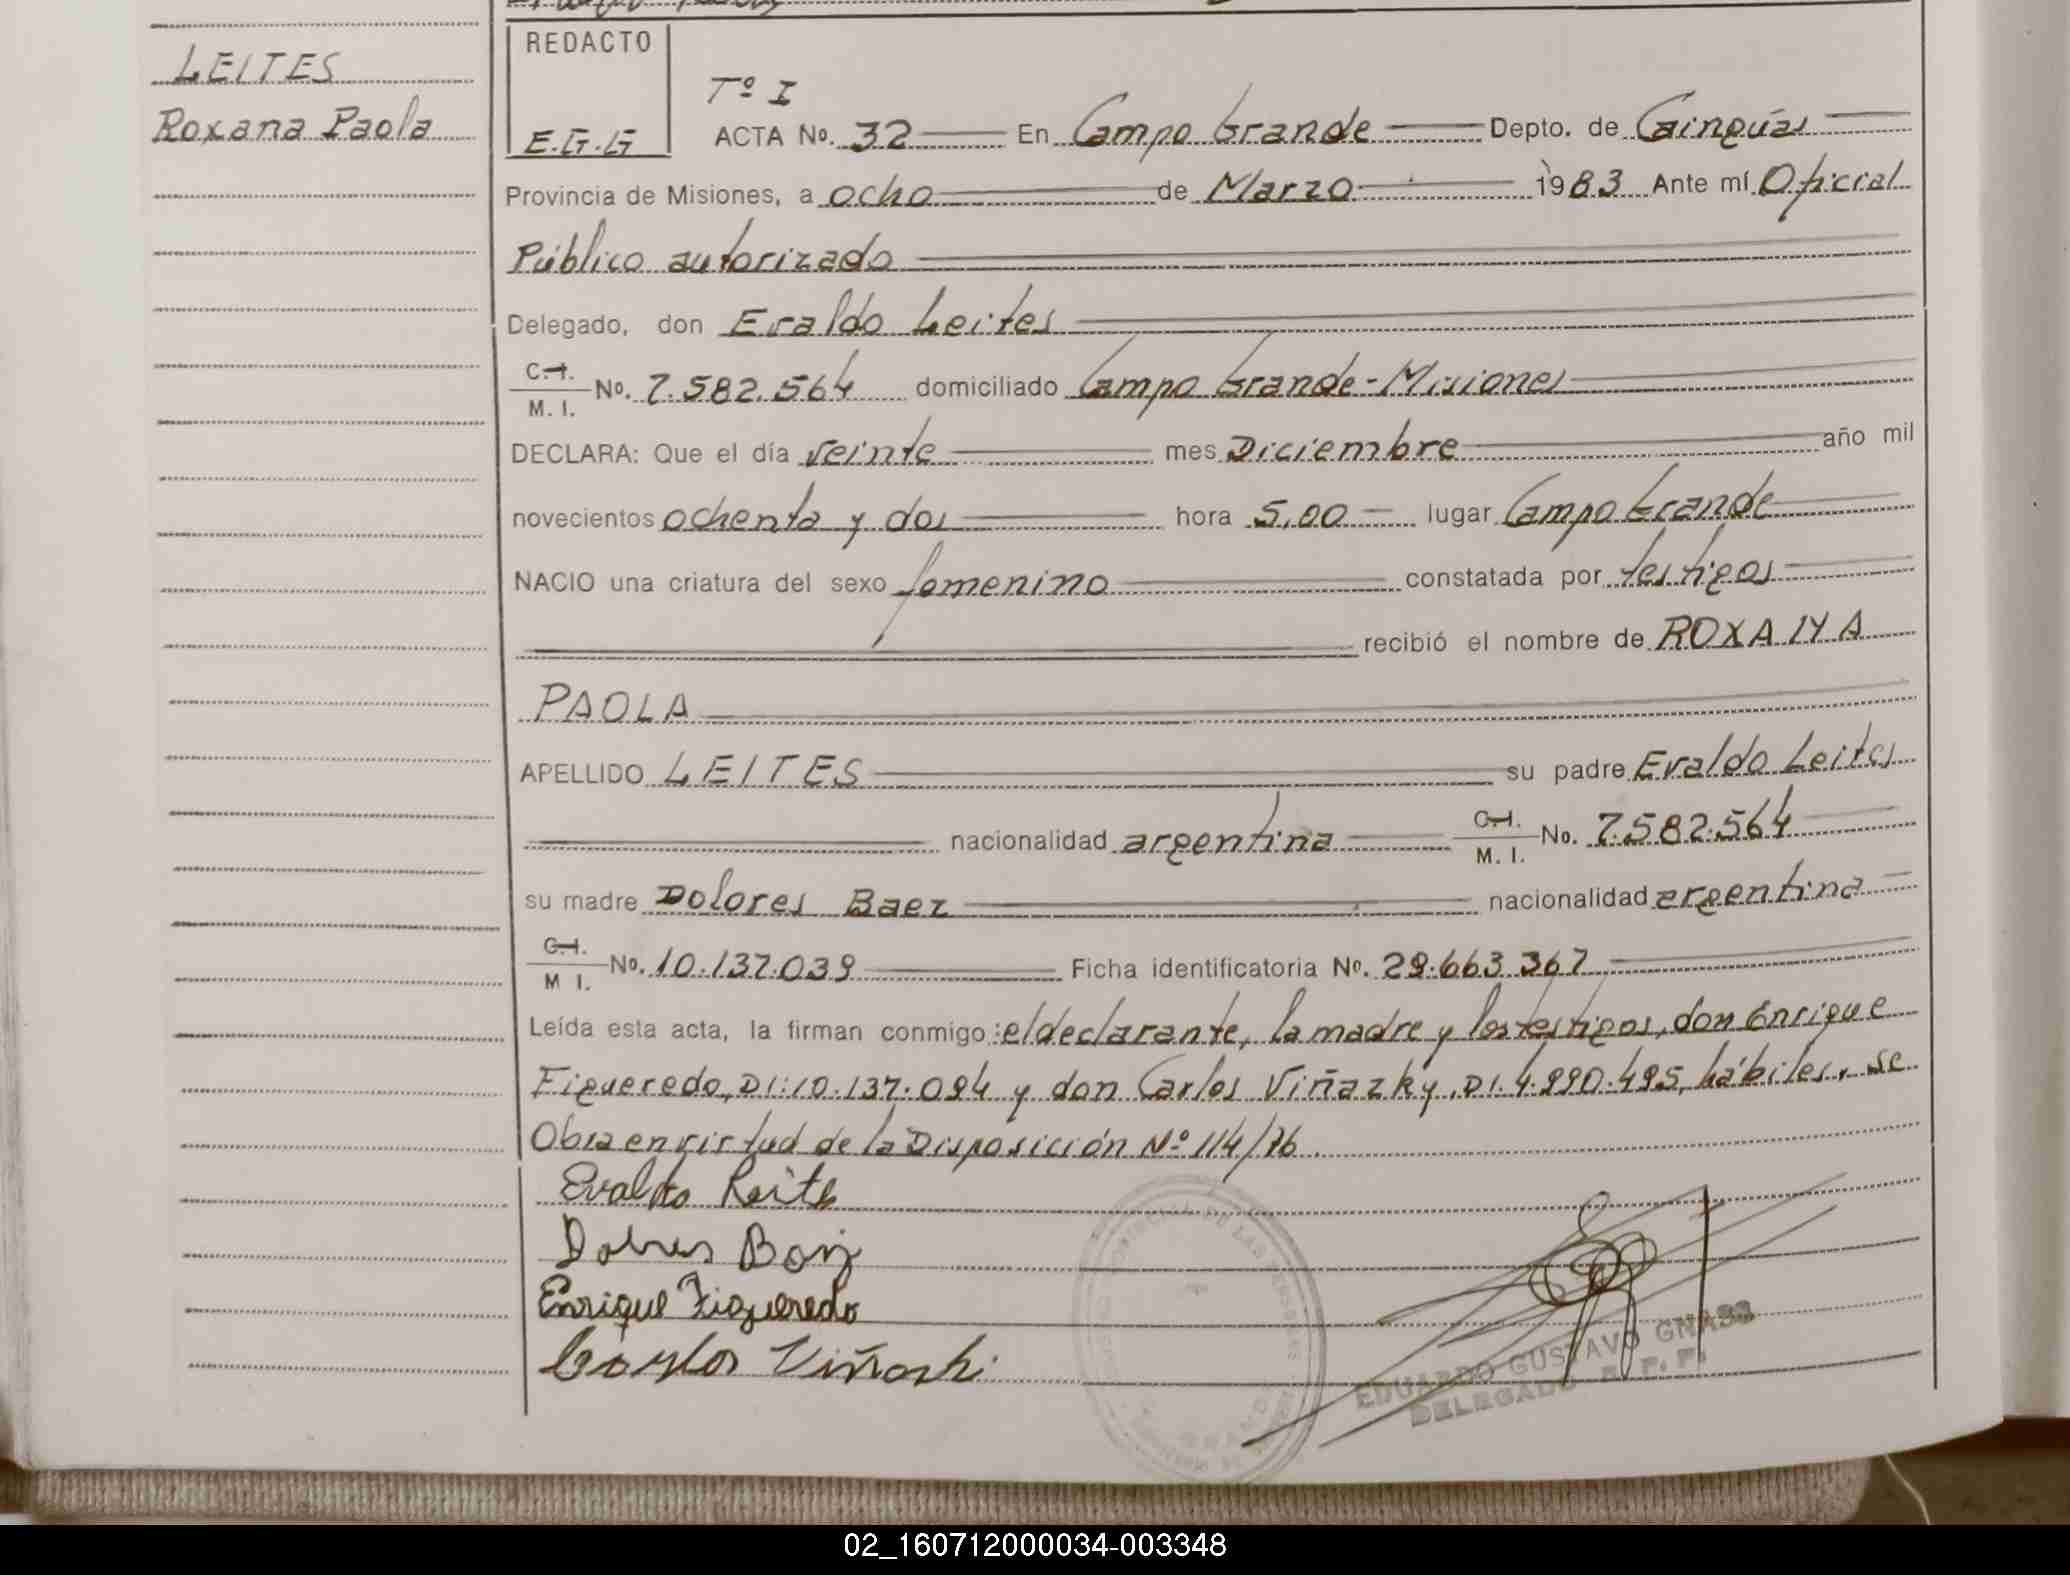 LEITES
Roxana Paola
REDACTO
E.G.G
Tº I
ACTA No. 32 En Campo Grande Depto. de Cainguás
Provincia de Misiones, a ocho de Marzo 1983 Ante mí Oficial
Público autorizado
Delegado, don Evaldo Leites
C.I. M. I. No. 7.582.564 domiciliado Campo Grande-Misiones
DECLARA: Que el día veinte mes Diciembre año mil
novecientos ochenta y dos hora 5,00 lugar Campo Grande
NACIO una criatura del sexo femenino constatada por testigos
recibió el nombre de ROXANA
PAOLA
APELLIDO LEITES su padre Evaldo Leites
nacionalidad argentina C.I. M. I. No. 7.582.564
su madre Dolores Baez nacionalidad argentina
C.I. M I. No. 10.137.039 Ficha identificatoria No. 29.663.367
Leída esta acta, la firman conmigo: el declarante, la madre y los testigos, don Enrique
Figueredo, DI:10.137.094 y don Carlos Viñazky, DI.4.990.495, hábiles. se
Obra en virtud de la Disposición Nº 114/76.
Evaldo Leites
Dolores
Enrique Figueredo
Carlos
EDUARDO GUSTAVO GNASS
DELEGADO R. P. P.
02_160712000034-003348